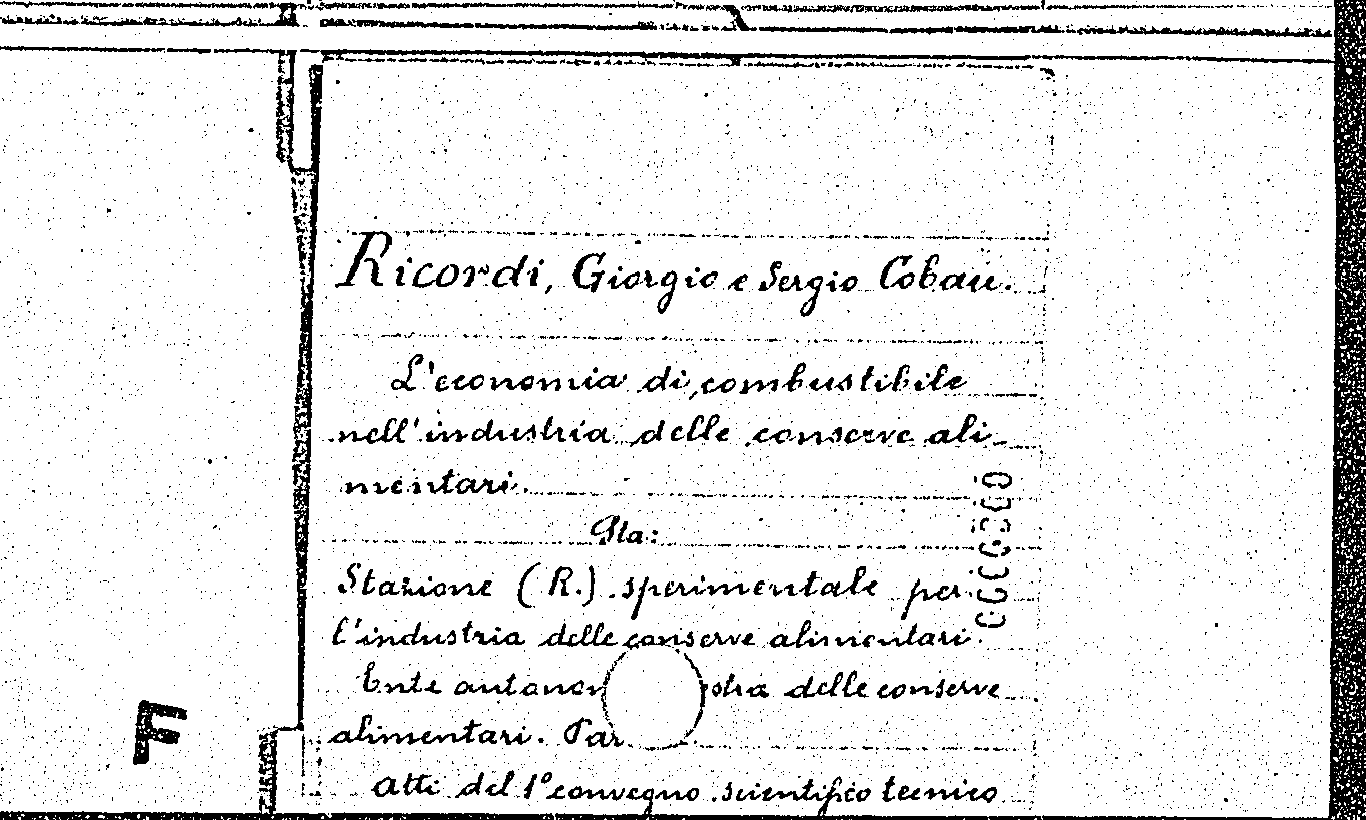 Ricordi, Giorgio e Sergio Cobau.
L'economia di combustibile
nell'industria delle conserve ali-
mentari.
Sta:
Stazione (R.) sperimentale per
l'industria delle conserve alimentari.
Ente delle conserve
alimentari.
Atti del 1º convegno scientifico tecnico
F